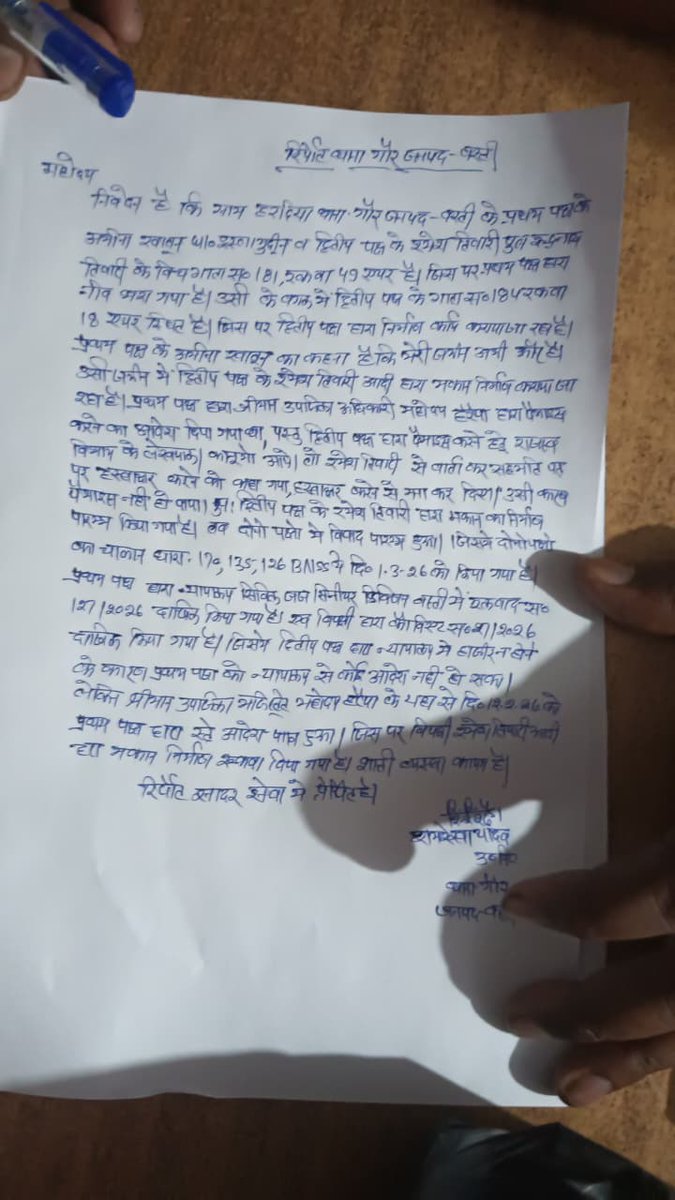 रिर्पोट थाना गौर जनपद-बस्ती
महोदय
निवेदन है कि ग्राम हरदिया थाना गौर जनपद-बस्ती के प्रथम पक्ष के
अमीना खातून व द्वितीय पक्ष के रमेश तिवारी पुत्र
तिवारी के बिच गाटा स० 181, रकबा 49 एयर है। जिस पर प्रथम पक्ष द्वारा
नीव भरा गया है। उसी के बगल में द्वितीय पक्ष के गाटा स० 184 रकबा
18 एयर स्थित है। जिस पर द्वितीय पक्ष द्वारा निर्माण कार्य कराया जा रहा है।
प्रथम पक्ष के अमीना खातून का कहना है कि मेरी जमीन अभी और है।
उसी जमीन में द्वितीय पक्ष के रमेश तिवारी आदी द्वारा मकान निर्माण कराया जा
रहा है। प्रथम पक्ष द्वारा श्रीमान उपजिला अधिकारी महोदय हर्रैया द्वारा पैमाइस
करने का आदेश दिया गया था, परन्तु द्वितीय पक्ष द्वारा पैमाइस करने हेतु राजस्व
विभाग के लेखपाल/ कानूनगो आये। तो रमेश तिवारी से वार्ता कर सहमति पत्र
पर हस्ताक्षर करने को कहा गया, हस्ताक्षर करने से मना कर दिया। उसी कारण
पैमाइस नही हो पाया। पुनः द्वितीय पक्ष के रमेश तिवारी द्वारा मकान का निर्माण
प्रारम्भ किया गया है। तब दोनो पक्षो मे विवाद प्रारम्भ हुआ। जिसमे दोनो पक्षो
का चालान धारा- 170, 135, 126 BNSS मे दि० 1-3-26 को किया गया है।
प्रथम पक्ष द्वारा न्यायालय सिविल जज सिनीयर डिविजन बस्ती में मूलवाद स०
127/2026 दाखिल किया गया है। एवं विपक्षी द्वारा कैविएट स० /2026
दाखिल किया गया है। जिसमे द्वितीय पक्ष द्वारा न्यायालय मे हाजीर न होने
के कारण प्रथम पक्ष को न्यायालय से कोई आदेश नही हो सका।
लेकिन श्रीमान उपजिला मजिस्ट्रेट महोदय हर्रैया के यहां से दि० 12.2.26 को
प्रथम पक्ष द्वारा स्टे आदेश प्राप्त हुआ। जिस पर विपक्षी रमेश तिवारी आदी
द्वारा मकान निर्माण रूकवा दिया गया है। शान्ती व्यवस्था कायम है।
रिर्पोट सादर सेवा मे प्रेषित है।
यादव
थाना गौर
जनपद-